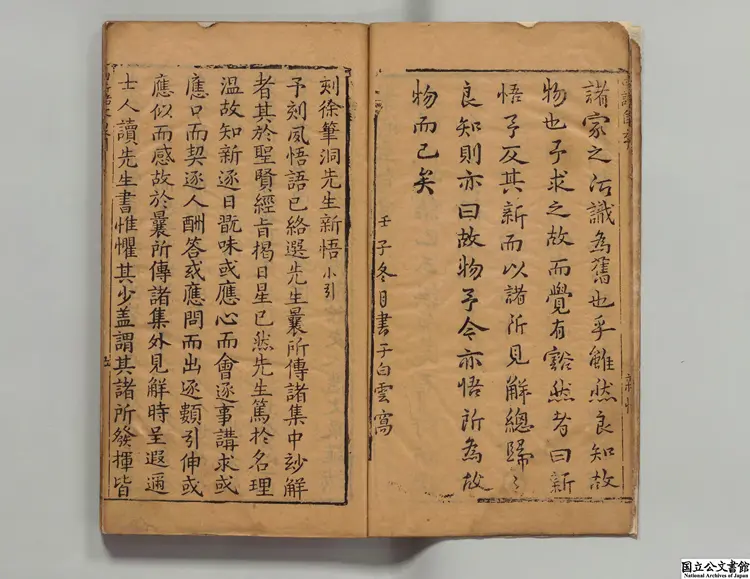 諸家之沿識為舊也乎雖然良知故
物也予求之故而覺有豁然者曰新
悟予反其新而以諸所見解總歸之
良知則亦曰故物予今亦悟所為故
物而已矣
壬子冬月書于白雲窩
刻徐筆洞先生新悟小引
予刻夙悟語已絡選先生曩所傳諸集中妙解
者其於聖賢經旨揭日星已然先生篤於名理
溫故知新逐日翫味或應心而會逐事講求或
應口而契逐人酬答或應問而出逐類引伸或
應似而感故於曩所傳諸集外見解時呈遐邇
士人讀先生書惟懼其少盖謂其諸所發揮皆
国立公文書館
National Archives of Japan